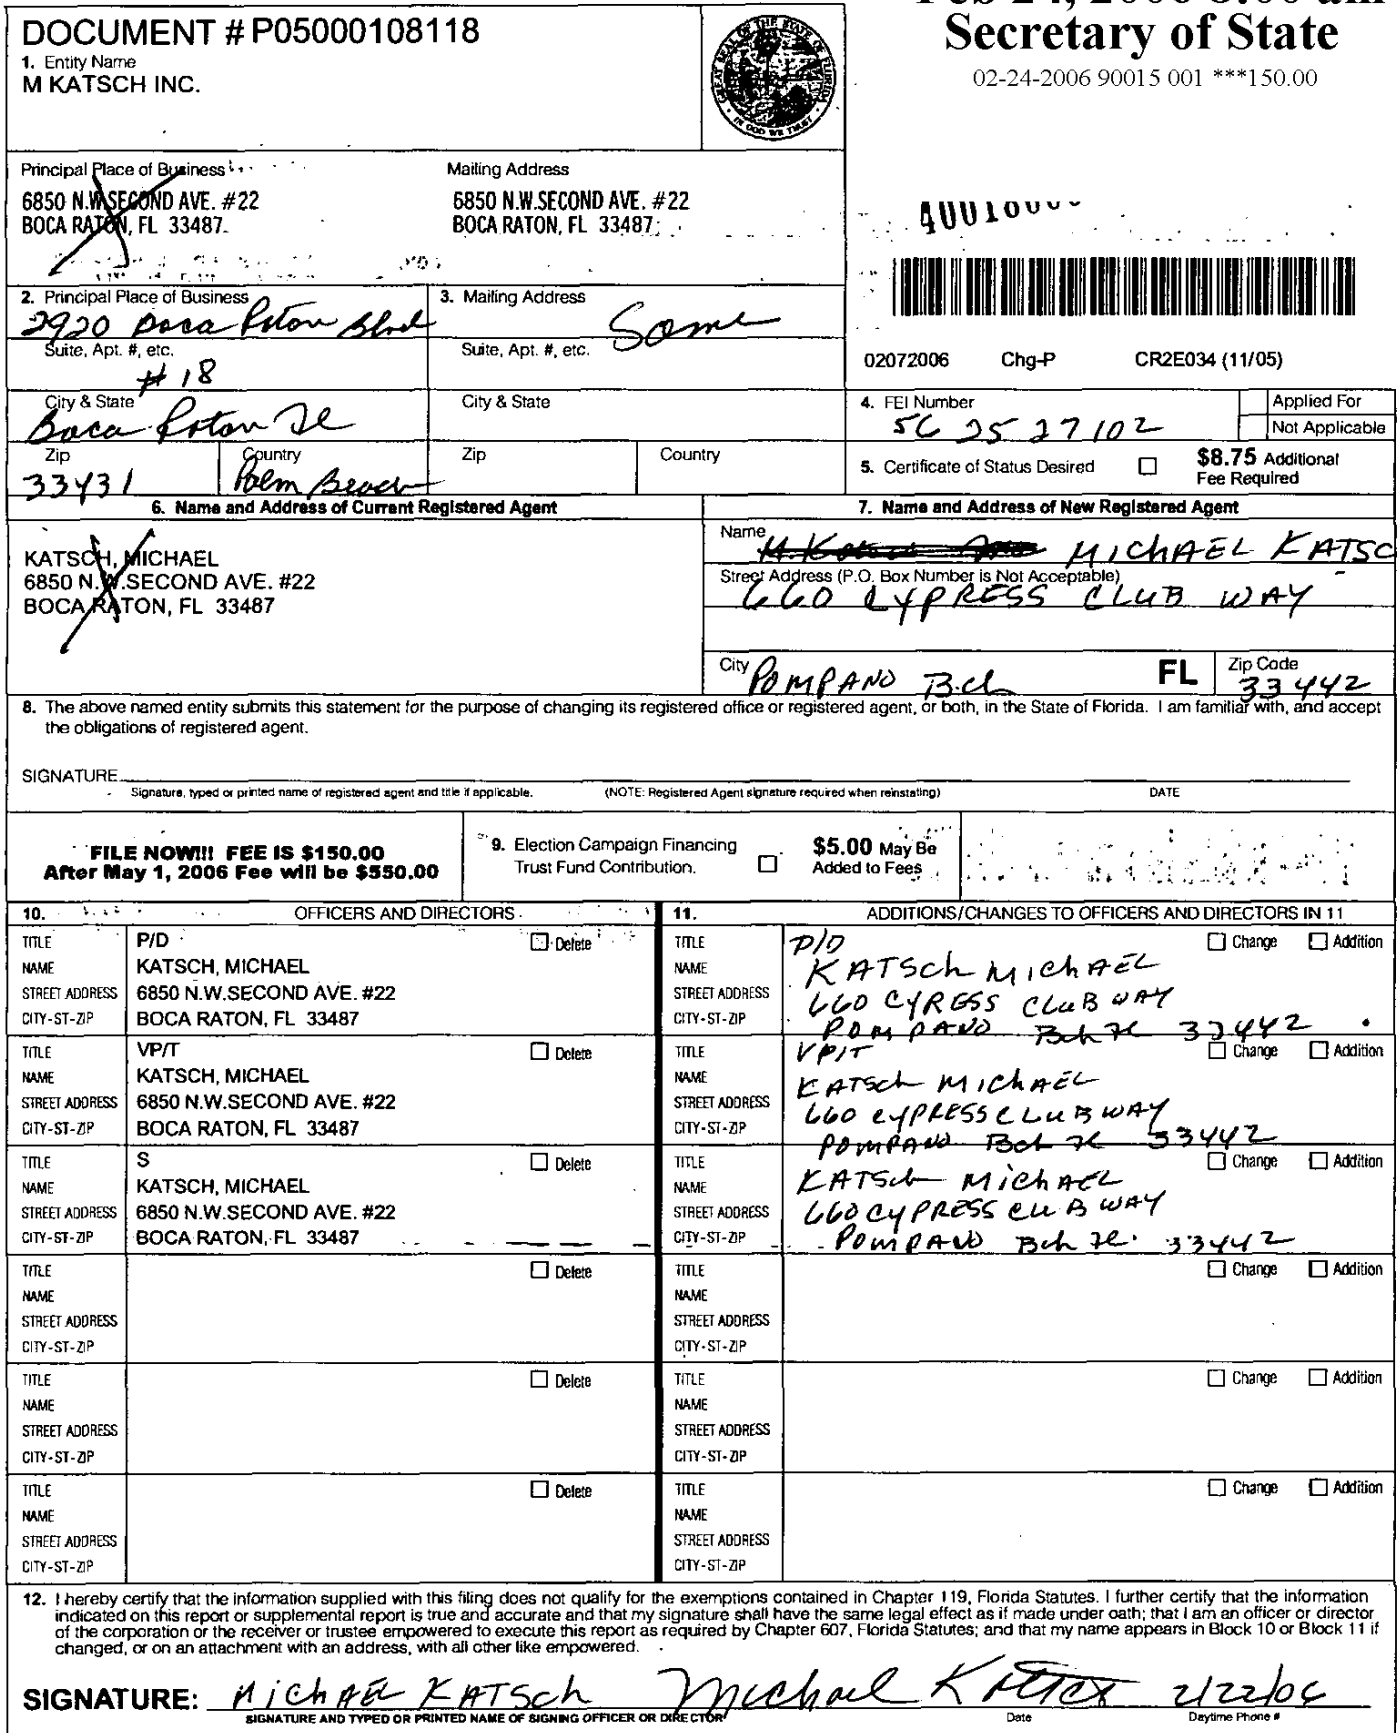 DOCUMENT # P05000108118
1. Entity Name
M KATSCH INC.
GREAT SEAL OF THE STATE OF FLORIDA
IN GOD WE TRUST
Secretary of State
02-24-2006 90015 001 ***150.00
Principal Place of Business
6850 N.W.SECOND AVE. #22
BOCA RATON, FL 33487
Mailing Address
6850 N.W.SECOND AVE. #22
BOCA RATON, FL 33487
2. Principal Place of Business
2920 Boca Raton Blvd
3. Mailing Address
Same
Suite, Apt. #, etc.
# 18
Suite, Apt. #, etc.
02072006 Chg-P CR2E034 (11/05)
City & State
Boca Raton Fl
City & State
4. FEI Number
56 25 27102
Applied For
Not Applicable
Zip
33431
Country
Palm Beach
Zip
Country
5. Certificate of Status Desired
$8.75 Additional
Fee Required
6. Name and Address of Current Registered Agent
KATSCH, MICHAEL
6850 N.W.SECOND AVE. #22
BOCA RATON, FL 33487
7. Name and Address of New Registered Agent
Name
MICHAEL KATSC
Street Address (P.O. Box Number is Not Acceptable)
660 CYPRESS CLUB WAY
City POMPANO Bch FL Zip Code 33442
8. The above named entity submits this statement for the purpose of changing its registered office or registered agent, or both, in the State of Florida. I am familiar with, and accept
the obligations of registered agent.
SIGNATURE
Signature, typed or printed name of registered agent and title if applicable. (NOTE: Registered Agent signature required when reinstating) DATE
FILE NOW!!! FEE IS $150.00
After May 1, 2006 Fee will be $550.00
9. Election Campaign Financing
Trust Fund Contribution.
$5.00 May Be
Added to Fees
10. OFFICERS AND DIRECTORS
TITLE P/D Delete
NAME KATSCH, MICHAEL
STREET ADDRESS 6850 N.W.SECOND AVE. #22
CITY-ST-ZIP BOCA RATON, FL 33487
TITLE VP/T Delete
NAME KATSCH, MICHAEL
STREET ADDRESS 6850 N.W.SECOND AVE. #22
CITY-ST-ZIP BOCA RATON, FL 33487
TITLE S Delete
NAME KATSCH, MICHAEL
STREET ADDRESS 6850 N.W.SECOND AVE. #22
CITY-ST-ZIP BOCA RATON, FL 33487
TITLE Delete
NAME
STREET ADDRESS
CITY-ST-ZIP
TITLE Delete
NAME
STREET ADDRESS
CITY-ST-ZIP
TITLE Delete
NAME
STREET ADDRESS
CITY-ST-ZIP
11. ADDITIONS/CHANGES TO OFFICERS AND DIRECTORS IN 11
TITLE P/D Change Addition
NAME KATSCh MIChAEL
STREET ADDRESS 660 CYRESS CLUB WAY
CITY-ST-ZIP POMPANO Bch Fl 33442
TITLE VP/T Change Addition
NAME KATSCh MIChAEL
STREET ADDRESS 660 CYPRESS CLUB WAY
CITY-ST-ZIP POMPANO Bch Fl 33442
TITLE Change Addition
NAME KATSCh MIChAEL
STREET ADDRESS 660 CYPRESS CLUB WAY
CITY-ST-ZIP POMPANO Bch Fl. 33442
TITLE Change Addition
NAME
STREET ADDRESS
CITY-ST-ZIP
TITLE Change Addition
NAME
STREET ADDRESS
CITY-ST-ZIP
TITLE Change Addition
NAME
STREET ADDRESS
CITY-ST-ZIP
12. I hereby certify that the information supplied with this filing does not qualify for the exemptions contained in Chapter 119, Florida Statutes. I further certify that the information
indicated on this report or supplemental report is true and accurate and that my signature shall have the same legal effect as if made under oath; that I am an officer or director
of the corporation or the receiver or trustee empowered to execute this report as required by Chapter 607, Florida Statutes; and that my name appears in Block 10 or Block 11 if
changed, or on an attachment with an address, with all other like empowered.
SIGNATURE: MIChAEL KATSCh Michael Katsch 2/22/06
SIGNATURE AND TYPED OR PRINTED NAME OF SIGNING OFFICER OR DIRECTOR Date Daytime Phone #